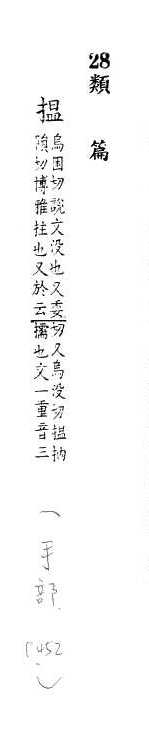 28類
篇
搵
烏困切說文没也又委切又烏没切搵抐
隕切博雅拄也又於云擩也文一重音三
(手部
P452)